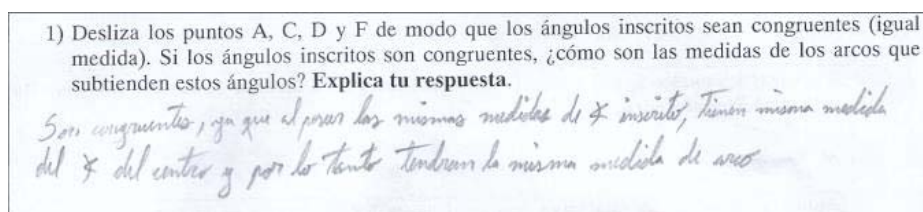 1) Desliza los puntos A, C, D y F de modo que los ángulos inscritos sean congruentes (igual
medida). Si los ángulos inscritos son congruentes, ¿cómo son las medidas de los arcos que
subtienden estos ángulos? Explica tu respuesta.
Son congruentes, ya que al poseer las mismas medidas de ∢ inscrito, tienen misma medida
del ∢ del centro y por lo tanto tendran la misma medida de arco